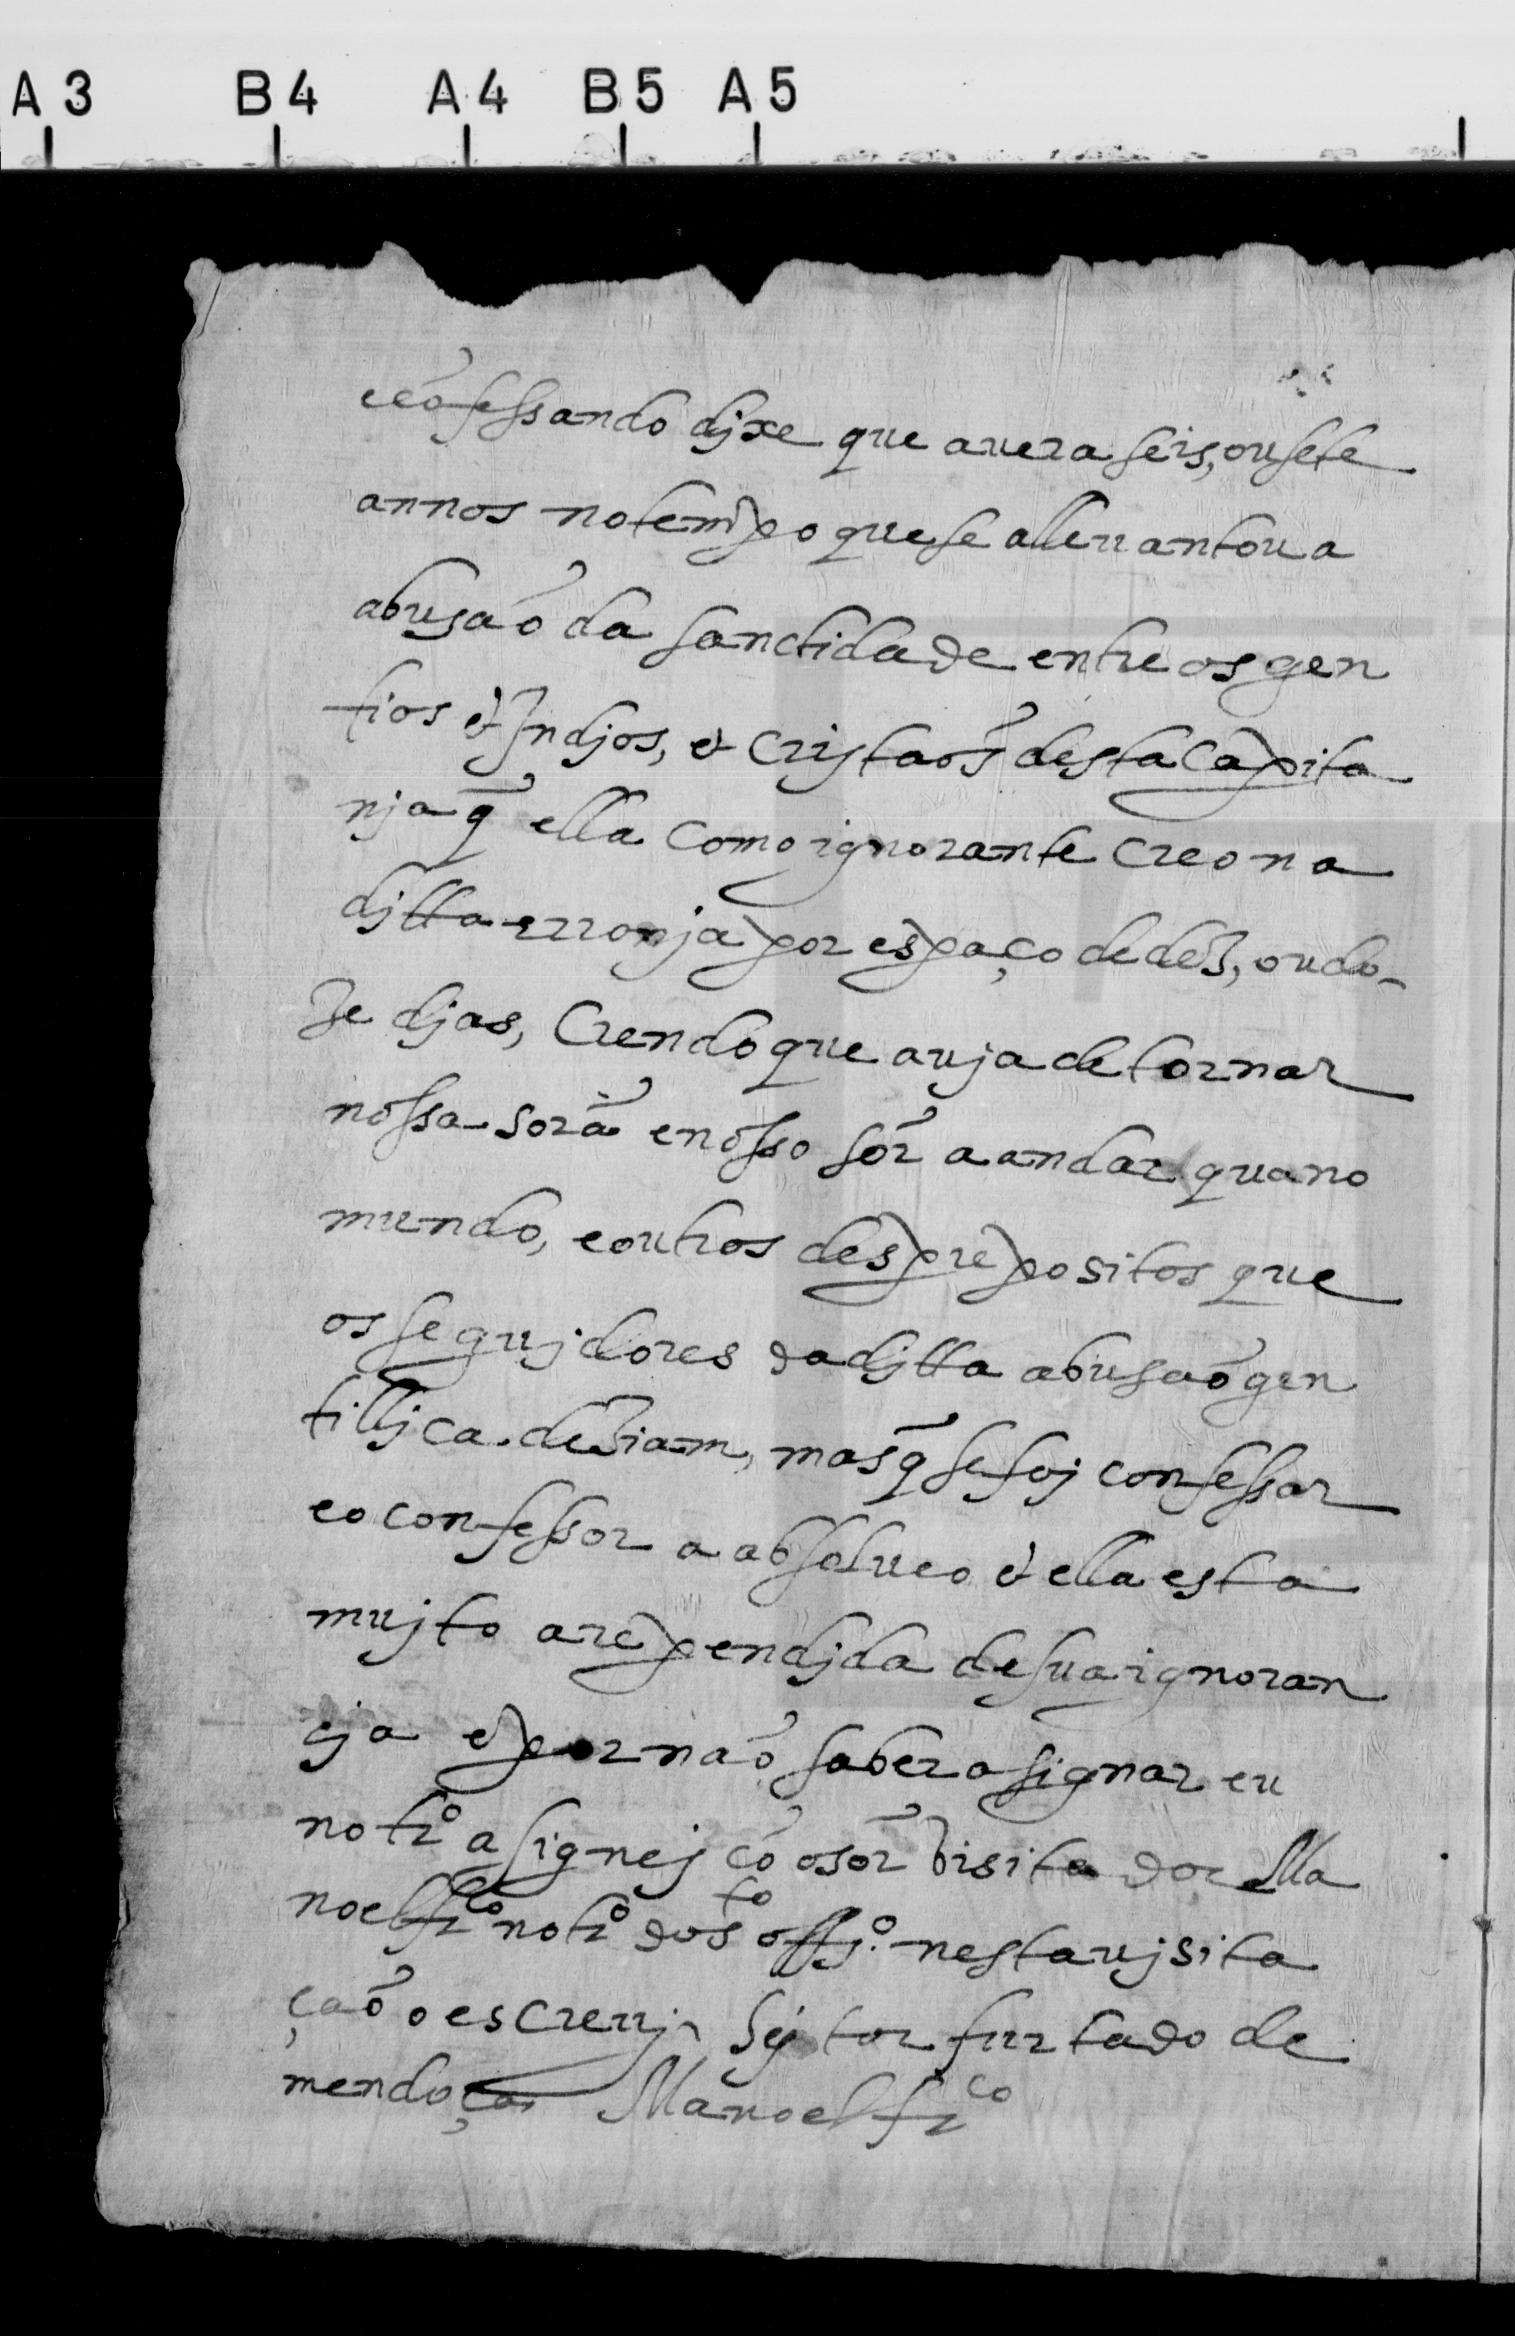 A3 B4 A4 B5 A5
ecõfessando djxe que auera seis, ou sete
annos no tempo que se alleuantou a
abusaõ da sanctidade entre os gen
tios & Indjos, & cristaõs desta capita
nja q̃ ella como ignorante creo na
djtta erronja por espaço de dez, ou do-
ze djas, crendo que auja de tornar
nossa sorã e nosso sõr a andar qua no
mundo, e outros desprepositos que
os seguidores da djtta abusaõ gen
tilljca deziam, mas q̃ se foj confessar
e o confessor a absolueo & ella esta
mujto arependjda de sua ignoran
cja e por naõ saber asignar eu
notrº asignej cõ o sõr visitador Ma
noel frco notrº do sto offjº. nesta vjsita
çaõ o escreuj. Hejtor furtado de
mendoça Manoel frco